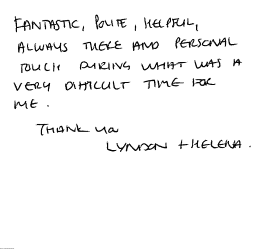 FANTASTIC, POLITE, HELPFUL,
ALWAYS THERE AND PERSONAL
TOUCH DURING WHAT WAS A
VERY DIFFICULT TIME FOR
ME.
THANK YOU
LYNDON + HELENA.